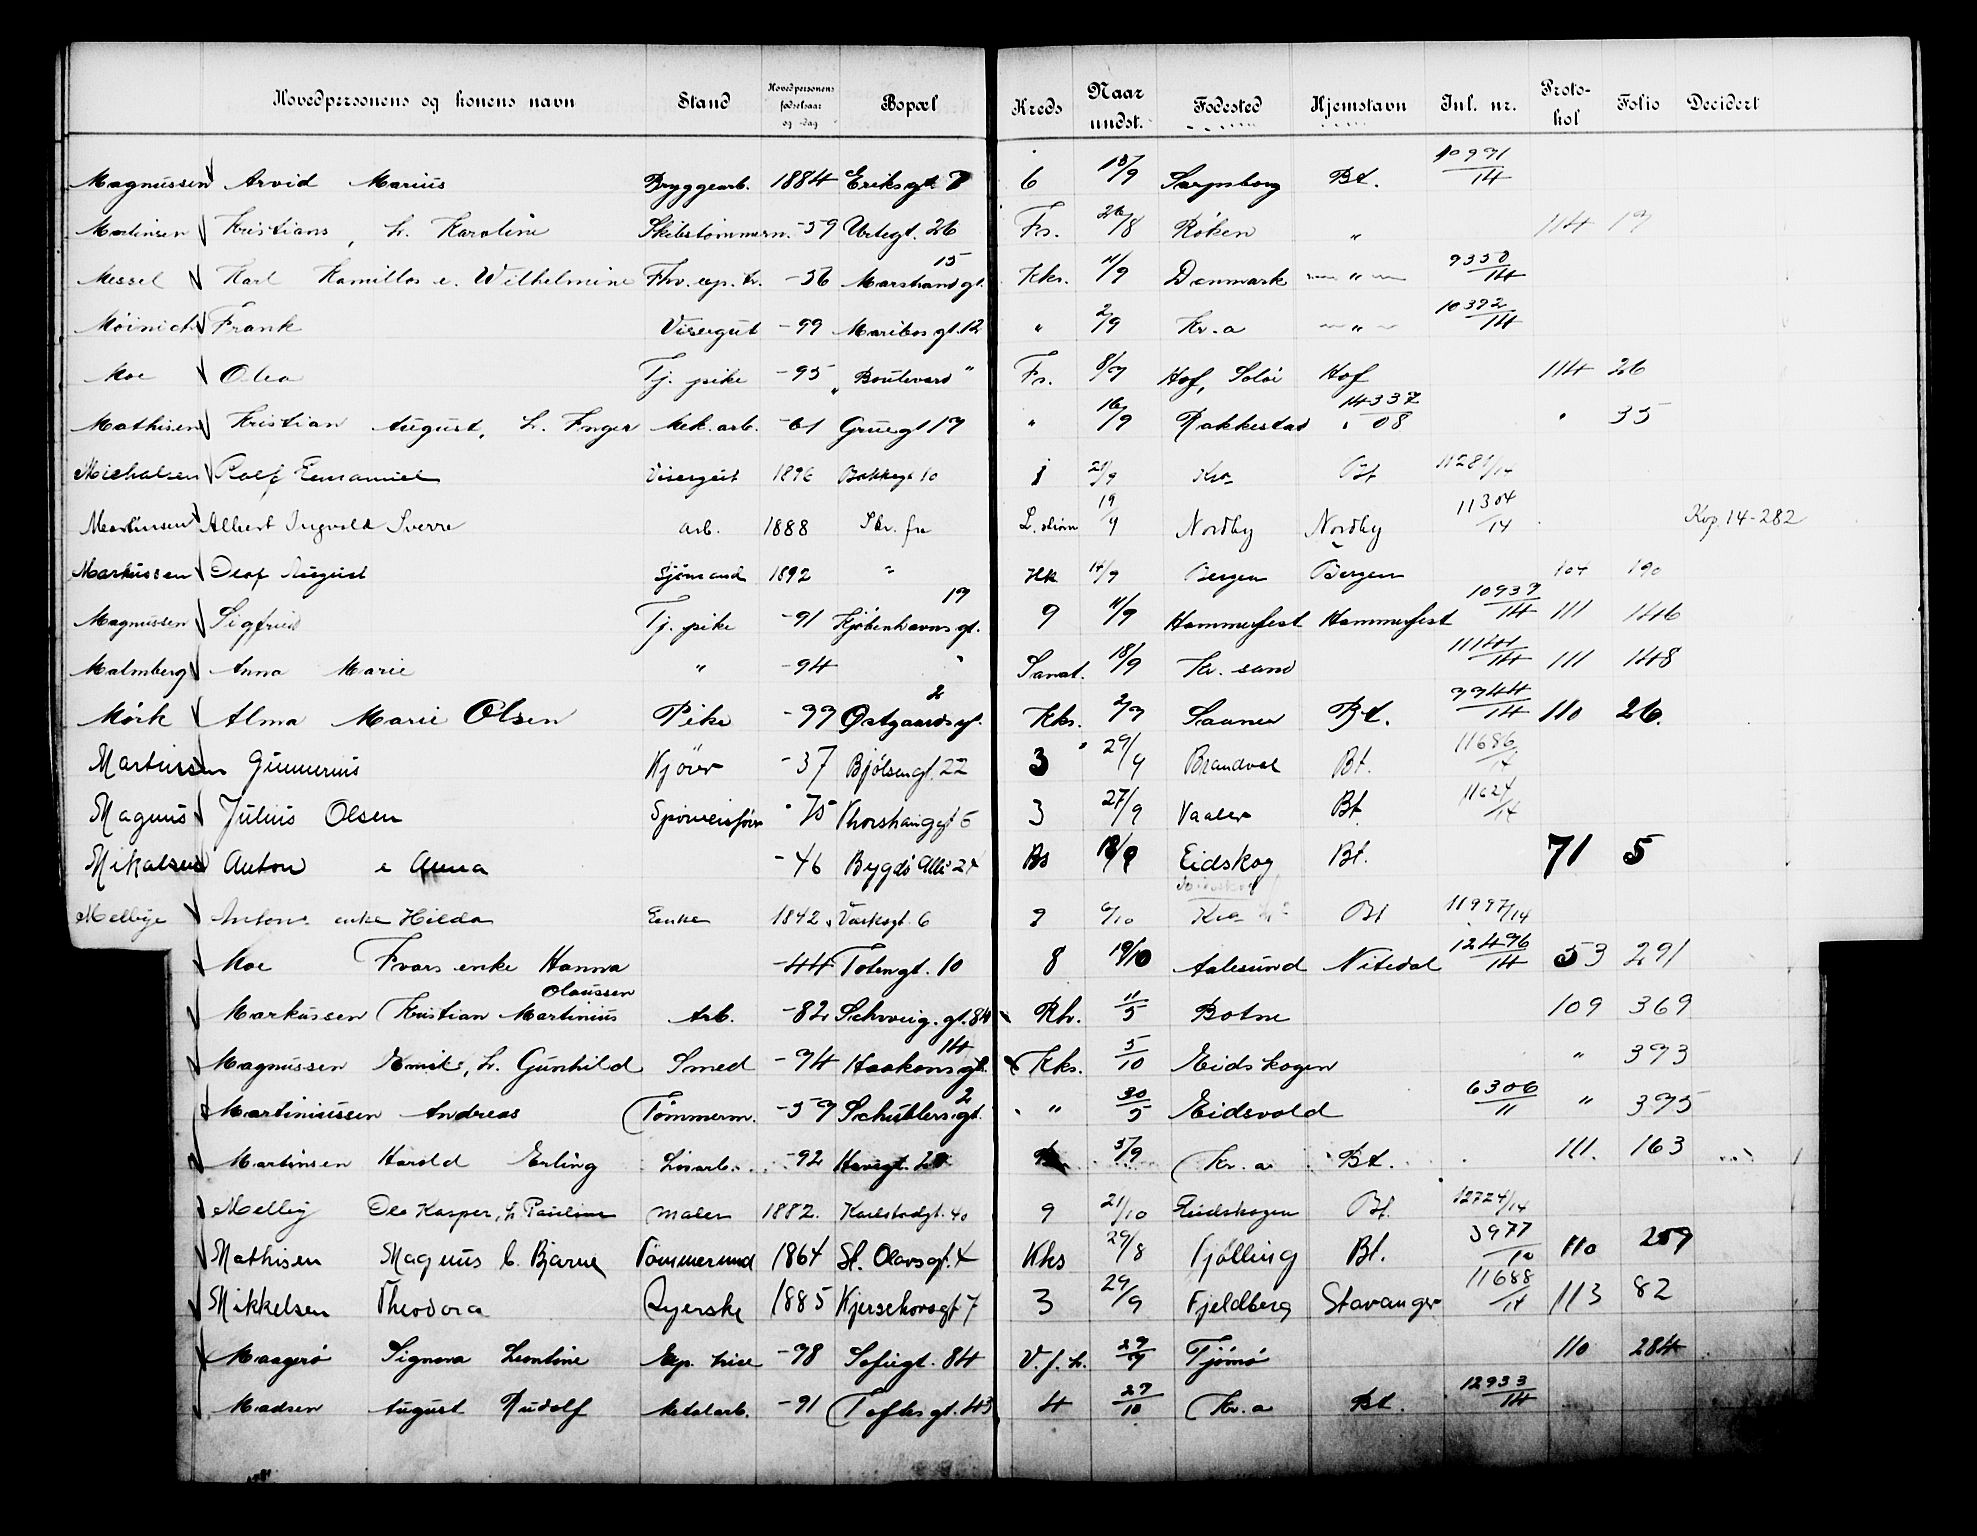 Hovedpersonens og konens navn Stand Hovedpersonens fødselsaar og -dag Bopæl Kreds Naar undst. Fødested Hjemstavn Jnl. nr. Proto-kol Folio Decidert
Magnussen Arvid Marius Bryggearb. 1884 Eriks gt. 7 6 18/9 Sarpsborg Bt. 10991/14
Martinsen Kristians, h. Karoline Skibstømmerm. -59 Urtegt. 26 Fr. 26/8 Røken " 114 19
Messel Karl Kamillas e. Wilhelmine Fhv. exp. tr. -56 Marstrandgt. 15 Kks. 11/9 Danmark " 9350/14
Møinich Frank Visergut -99 Maribos gt. 12 " 2/9 Kr.a " 10392/14
Moe Olea Tj. pike -95 " Boulevard " Fr. 8/9 Hof, Solør Hof 114 26
Mathisen Kristian August, h. Inger Mek. arb. -61 Gruegt 19 " 16/9 Rakkestad " 14337/08 " 35
Michalsen Rolf Emanuel Visergut 1896 Bakkegt 10 1 21/9 Kra Bt 11281/14
Martinsen Albert Ingvald Sverre arb. 1888 19/9 Nordby Nordby 11304/14 Kop. 14-282
Markussen Olaf August Sjømand 1892 " Hk 14/9 Bergen Bergen 104 190
Magnussen Sigfrid Tj. pike -91 Kjøbenhavns gt. 19 9 11/9 Hammerfest Hammerfest 10939/14 111 146
Malmberg Anna Marie " -94 " Sanat. 18/9 Kr. sand 11141/14 111 148
Mørk Alma Marie Olsen Pike -99 Østgaards gt. 2 Kks. 2/9 Saaner Bt. 9944/14 110 26.
Martinsen Gunnerius Kjører -37 Bjølsengt. 22 3 29/9 Brandval Bt. 11686/14
Magnus Julius Olsen Sporveisfører -75 Thorshauggt 5 3 27/9 Vaaler Bt 11624/14
Mikalsen Anton e Anna -46 Bygdø Allé 24 Bs 18/9 Eidskog Bt. 71 5
Melbye Antons enke Hilda Enke 1842 6 9 6/10 Kra Bt 11997/14
Moe Ivars enke Hanna -44 Totengt. 10 8 19/10 Aalesund Nitedal 12496/14 53 291
Markussen Kristian Martinius Olaussen Arb. -82 Schweig. gt. 84 Rh. 11/5 Botne 109 369
Magnussen Emil, h. Gunhild Smed -94 Haakons gt. 14 Kks. 5/10 Eidskogen " 393
Martiniussen Andreas Tømmerm. -59 Schüblers gt. 2 " 30/5 Eidsvold 6306/11 " 395
Martinsen Harold Erling Løsarb. -92 Havegt. 20 5/9 Kr.a Bt. 111. 163
Melby Ole Kasper, h Pauline Maler 1882. Karlstadgt. 40 9 21/10 Eidskogen Bt. 12724/14
Mathisen Magnus C. Bjarne Tømmermnd 1864 St. Olavsgt. 4 Kks 29/8 Fjølling Bt. 3977/10 110 259
Mikkelsen Theodora Syerske 1885 Kjerschowsgt 7 3 29/9 Fjeldberg Stavanger 11688/14 113 82
Maagerø Signora Leontine Exp. trice -98 Sofiegt. 84 V.f.h. 29/9 Tjømø 110 284
Madsen August Rudolf Metalarb. -91 Toftes gt. 43 4 27/10 Kr.a Bt. 12933/14